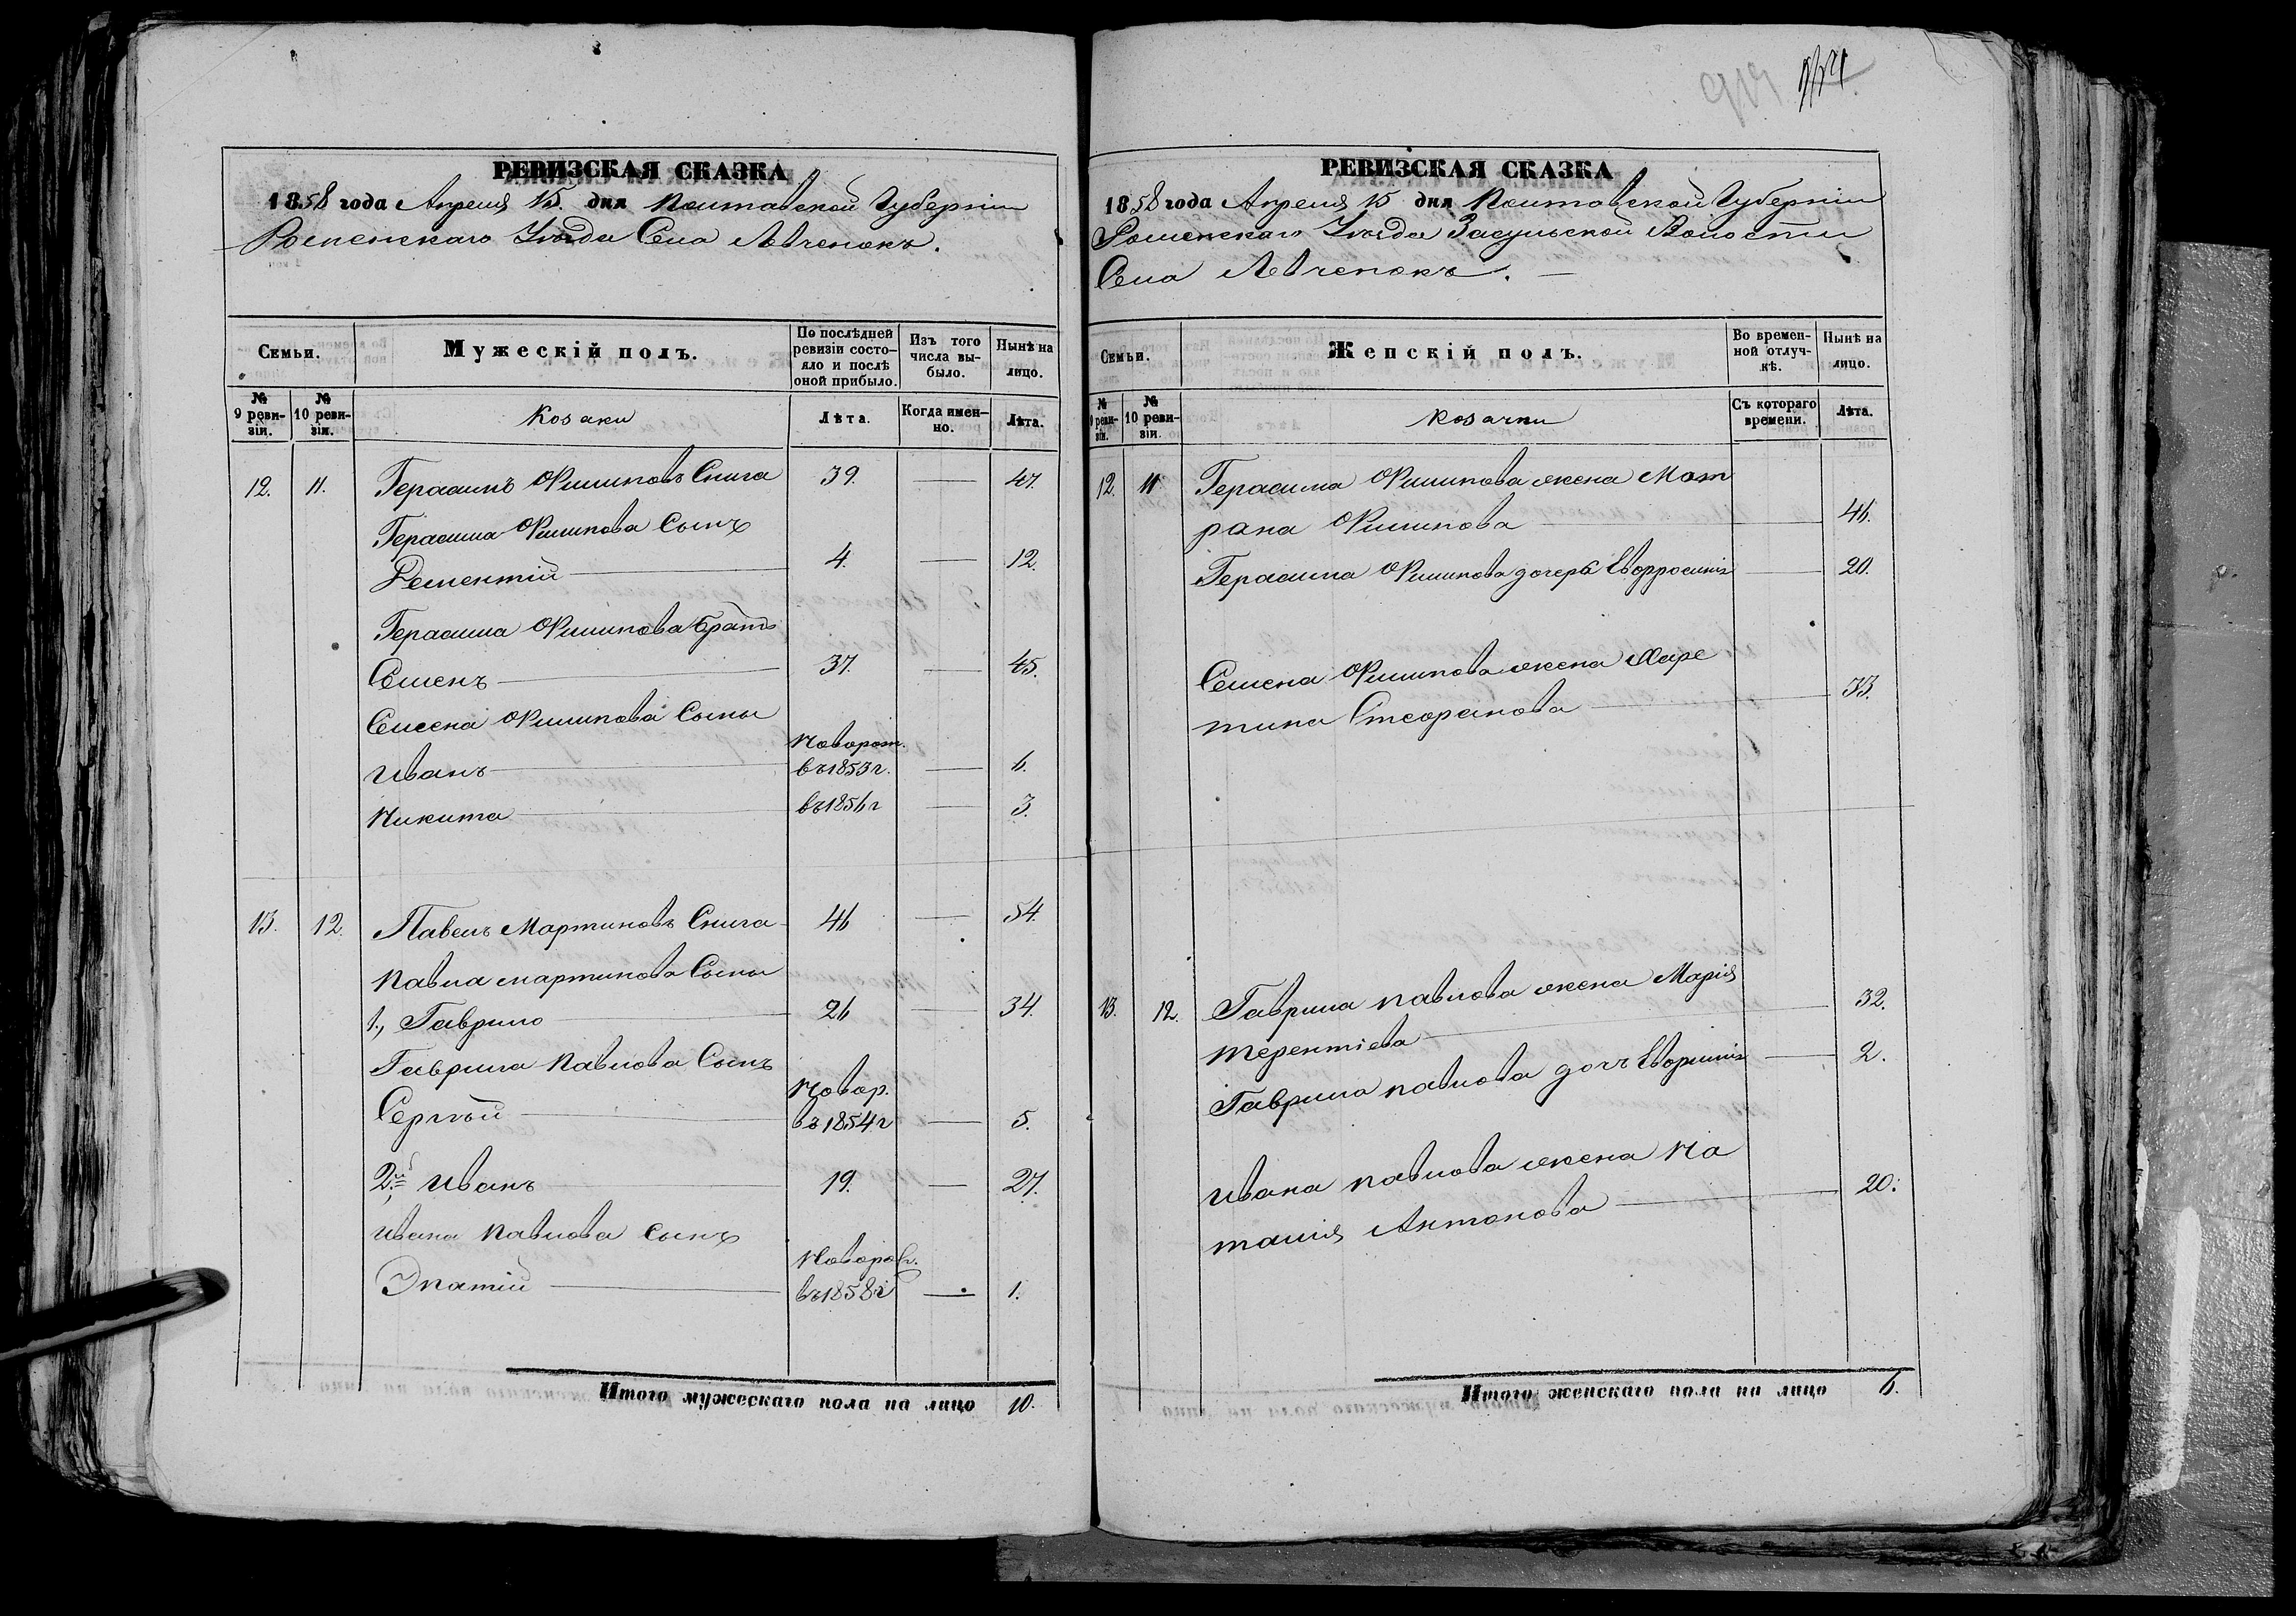 РЕВИЗСКАЯ СКАЗКА
1858 года Апреля 15. дня Полтавской Губерніи
Роменскаго Уѣзда Села Лѣвченокъ.
Семьи.
Мужескій полъ.
По послѣдней ревизіи состояло и послѣ оной прибыло.
Изъ того числа выбыло.
Нынѣ на лицо.
№ 9 ревизіи.
№ 10 ревизіи.
Козаки
Лѣта.
Когда именно.
Лѣта.
12. 11. Герасимъ Филиповъ Снига 39. — 47.
Герасима Филипова Сынъ
Дементій — 4. — 12.
Герасима Филипова братъ
Семенъ — 37. — 45.
Семена Филипова Сыны
Иванъ — Новорож. въ 1853 г. — 6.
Никита — въ 1856 г — 3.
13. 12. Павелъ Мартиновъ Снига 46 — 54.
Павла мартинова Сыны
1., Гаврило — 26 — 34.
Гаврила Павлова Сынъ
Сергѣй — Новор. въ 1854 г — 5.
2й Иванъ — 19. — 27.
Ивана Павлова сынъ
Игнатій — Новорож. въ 1858 г — 1.
Итого мужескаго пола на лицо 10.
РЕВИЗСКАЯ СКАЗКА
1858 года Апреля 15 дня Полтавской Губерніи
Роменскаго Уѣзда Засульской Волости
Села Лѣвченокъ. —
Семьи.
Женскій полъ.
Во временной отлучкѣ.
Нынѣ на лицо.
№ 9 ревизіи.
№ 10 ревизіи.
Козачки
Съ котораго времени.
Лѣта.
12. 11 Герасима Филипова жена Мот
рона Филипова — 46.
Герасима Филипова дочерь Евфросинія — 20.
Семена Филипова жена Харе
тина Стефанова — 33.
13. 12. Гаврила Павлова жена Марія
Терентіева — 32.
Гаврила Павлова дочъ — 2.
Ивана Павлова жена На
талія Антонова — 20.
Итого женскаго пола на лицо 6.